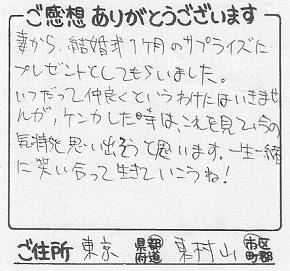 ご感想ありがとうございます
妻から、結婚式1ヶ月のサプライズに
プレゼントとしてもらいました。
いつだって仲良くというわけにはいきませ
んが、ケンカした時は、これを見て、今の
気持を思い出そうと思います。一生一緒
に笑い合って生きていこうね!
ご住所 東京 都道府県 東村山 市区町郡